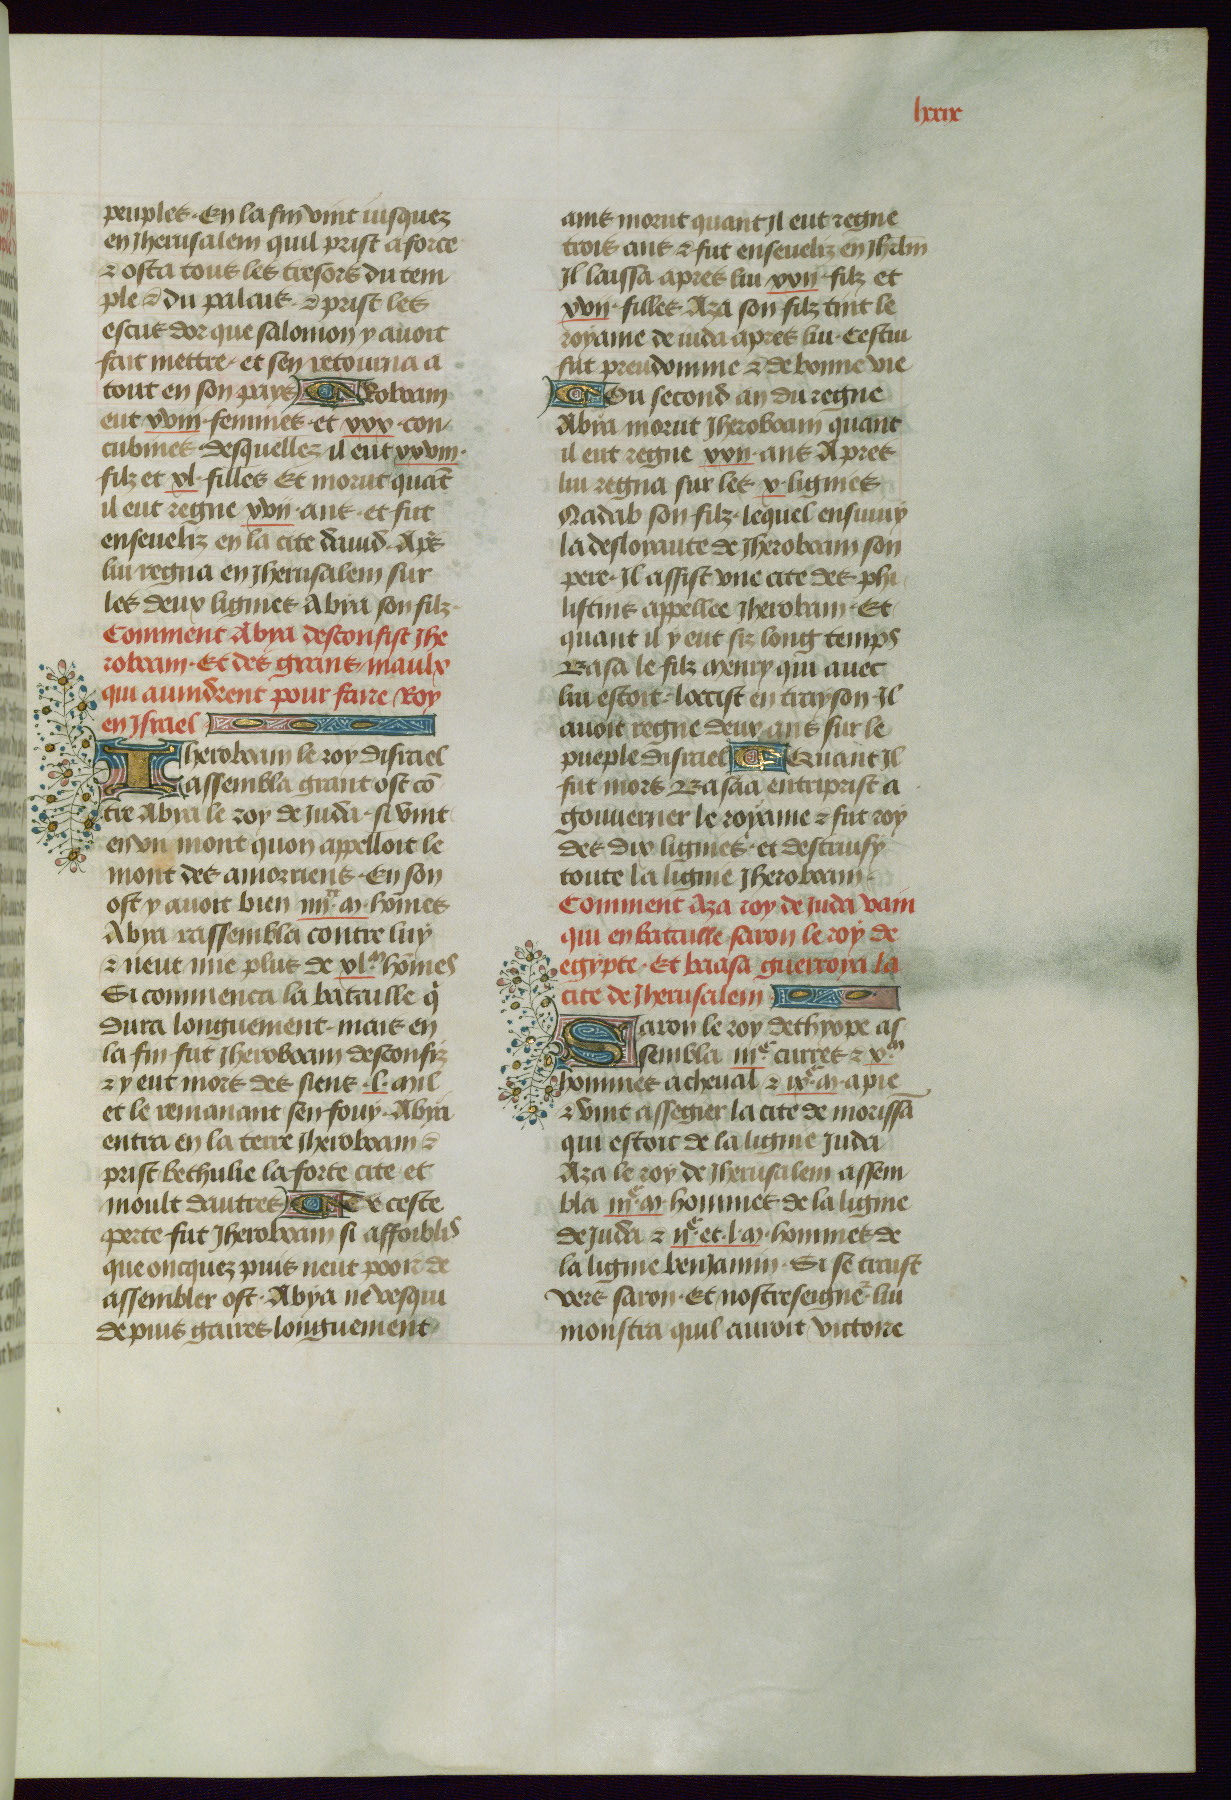 lxxix
peuples. En la fin vint iusquez
en Jherusalem quil prist a force
⁊ osta tous les tresors du tem
ple ⁊ du palais. ⁊ prist les
escus dor que salomon y auoit
fait mettre. et sen retourna a
tout en son pays Roboam
eut xviii. femmes. et xxx. con,
cubines. desquellez il eut xxviii.
filz et xl. filles Et morut quāt
il eut regne xvii. ans. et fut
enseueliz en la cite dauid. Apˢ
lui regna en Jherusalem sur
les deux lignies Abya son filz.
Comment Abya desconfist Jhe
roboam. Et des grans maulx
qui auindrent pour faire Roy
en Israel
Jheroboam le roy disrael
assembla grant ost cō
tre Abya le roy de Juda. si vint
en vn mont quon appelloit le
mont des amorriens. En son
ost y auoit bien iiii. m. hōmes
Abya rassembla contre luy
⁊ neut mie plus de xl.ᵐ hōmes
Si commenca la bataille q̄
dura longuement. mais en
la fin fut Jheroboam desconfiz
⁊ y eut mors des siens .l. mil
et le remanant sen fouy. Abya
entra en la terre Jheroboam ⁊
prist bethulie la forte cite et
moult dautres De ceste
perte fut Jheroboam si affoiblis
que oncquez puis neut pooir de
assembler ost. Abya ne vesqui
depuis gaires longuement
ains morut quant Il eut regne
trois ans ⁊ fut enseueliz en Jhrlm̄
Il laissa apres lui xxii. filz et
xvii. filles Aza son filz tint le
royame de iuda apres lui. Cestui
fut preudomme ⁊ de bonne vie
Ou second an du regne
Abya morut Jheroboam quant
il eut regne xxii. ans Apres
lui regna sur les x. lignies
Nadab son filz. lequel ensuiuy
la desloyaute de Jheroboam son
pere. Il assist vne cite des phi
listins appellee Jheroboam. Et
quant il y eut sis long temps
Basa le filz menry qui auec
lui estoit. loccist en trayson. Il
auoit regne deux ans sur le
pueple disrael Quant Il
fut mors Basaa entreprist a
gouuerner le royame ⁊ fut roy
des dix lignies. et destruisy
toute la lignie Jheroboam.
Comment Aza roy de Juda vain
qui en bataille saron le roy de
egypte. Et baasa guerroya la
cite de Jherusalem
Saron le roy dethyope as
sembla iii.ᶜ curres ⁊ x.ᵐ
hommes a cheual ⁊ ix.ᶜ m. a pie
⁊ vint assegier la cite de morissā
qui estoit de la lignie Juda
Aza le roy de Jherusalem assem
bla iii.ᶜ m. hommes de la lignie
de Juda ⁊ ii.ᶜ et .l. m. hommes de
la lignie beniamin. Si se traist
vers saron. Et nostreseignēr lui
monstra quil auroit victoire